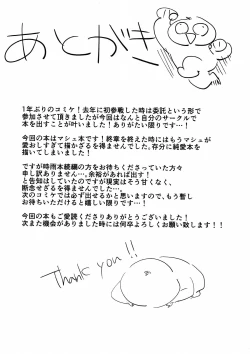 あとがき
1年ぶりのコミケ！去年に初参戦した時は委託という形で
参加させて頂きましたが今回はなんと自分のサークルで
本を出すことが叶いました！ありがたい限りです…！
今回の本はマシュ本です！終章を終えた時にはもうマシュが
愛おしすぎて描かざるを得ませんでした。存分に純愛本を
描いてしまいました！
ですが時雨本続編の方をお待ちくださっていた方々
申し訳ありません…。余裕があれば出す！
と告知はしていたのですが現実はそう甘くなく、
断念せざるを得ませんでした…。
次のコミケでは必ず出せるかと思いますので、もう暫し
お待ちいただけると嬉しい限りです…！
今回の本もご愛読くださりありがとうございました！
次また機会がありました時には何卒よろしくお願い致します！！
Thank you!!